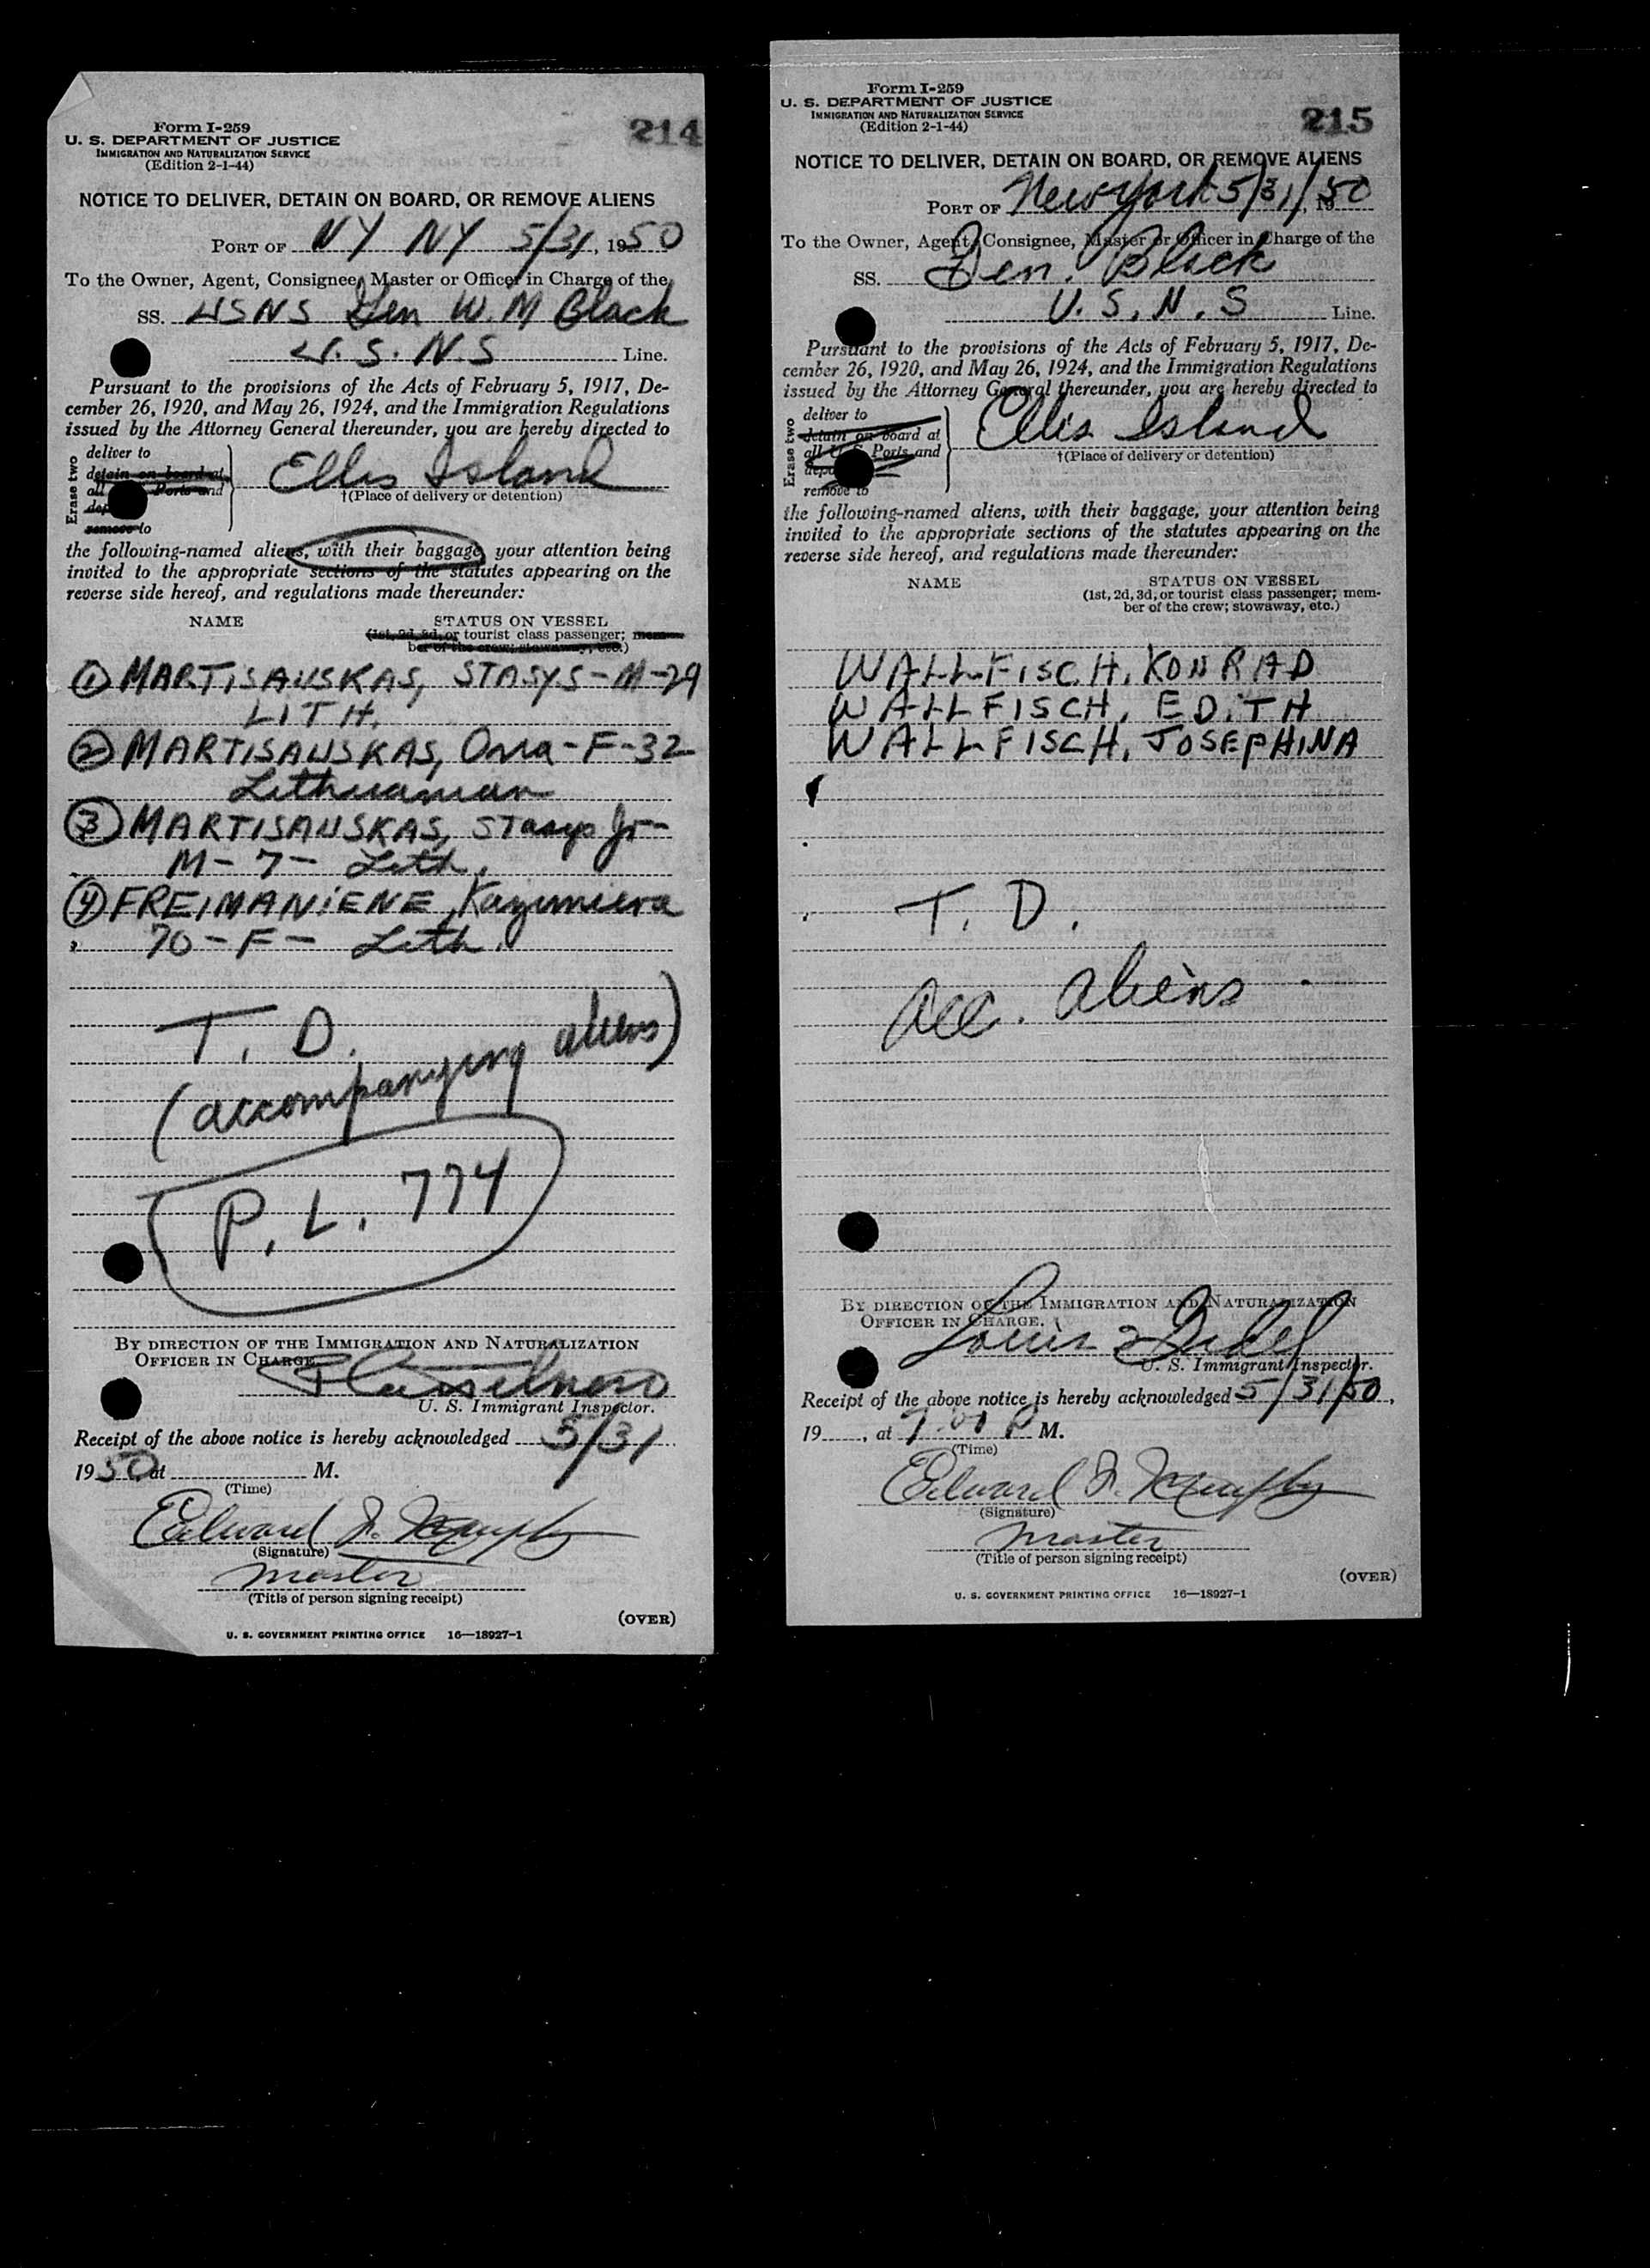 214
Form I-259
U. S. DEPARTMENT OF JUSTICE
IMMIGRATION AND NATURALIZATION SERVICE
(Edition 2-1-44)
NOTICE TO DELIVER, DETAIN ON BOARD, OR REMOVE ALIENS
PORT OF NY NY 5/31, 1950
To the Owner, Agent, Consignee, Master or Officer in Charge of the
SS. USNS Gen W. M Black
U. S. N. S Line.
Pursuant to the provisions of the Acts of February 5, 1917, De-
cember 26, 1920, and May 26, 1924, and the Immigration Regulations
issued by the Attorney General thereunder, you are hereby directed to
Erase two
deliver to
detain on board at
all Ports and
remove to
Ellis Island
†(Place of delivery or detention)
the following-named aliens, with their baggage, your attention being
invited to the appropriate sections of the statutes appearing on the
reverse side hereof, and regulations made thereunder:
NAME STATUS ON VESSEL
(1st, 2d, 3d, or tourist class passenger; mem-
ber of the crew; stowaway, etc.)
① MARTISAUSKAS, STASYS - M-29
LITH.
② MARTISAUSKAS, Ona - F-32
Lithuanian
③ MARTISAUSKAS, Stasys Jr -
M - 7 - Lith.
④ FREIMANIENE, Kazimiera
70 - F - Lith.
T. D.
(accompanying aliens)
P. L. 774
BY DIRECTION OF THE IMMIGRATION AND NATURALIZATION
OFFICER IN CHARGE.
U. S. Immigrant Inspector.
Receipt of the above notice is hereby acknowledged 5/31
1950, at M.
(Time)
Edward J. Murphy
(Signature)
Master
(Title of person signing receipt)
(OVER)
U. S. GOVERNMENT PRINTING OFFICE 16—18927-1
Form I-259
U. S. DEPARTMENT OF JUSTICE
IMMIGRATION AND NATURALIZATION SERVICE
(Edition 2-1-44)
215
NOTICE TO DELIVER, DETAIN ON BOARD, OR REMOVE ALIENS
PORT OF New York 5/31/, 1950
To the Owner, Agent, Consignee, Master or Officer in Charge of the
SS. Gen. Black
U. S. N. S Line.
Pursuant to the provisions of the Acts of February 5, 1917, De-
cember 26, 1920, and May 26, 1924, and the Immigration Regulations
issued by the Attorney General thereunder, you are hereby directed to
Erase two
deliver to
detain on board at
all U S Ports and
remove to
Ellis Island
†(Place of delivery or detention)
the following-named aliens, with their baggage, your attention being
invited to the appropriate sections of the statutes appearing on the
reverse side hereof, and regulations made thereunder:
NAME STATUS ON VESSEL
(1st, 2d, 3d, or tourist class passenger; mem-
ber of the crew; stowaway, etc.)
WALLFISCH, KONRAD
WALLFISCH, EDITH
WALLFISCH, JOSEPHINA
T. D.
acc. aliens
BY DIRECTION OF THE IMMIGRATION AND NATURALIZATION
OFFICER IN CHARGE.
Louis
U. S. Immigrant Inspector.
Receipt of the above notice is hereby acknowledged 5/31/50,
19, at P M.
(Time)
Edward J. Murphy
(Signature)
Master
(Title of person signing receipt)
(OVER)
U. S. GOVERNMENT PRINTING OFFICE 16—18927-1